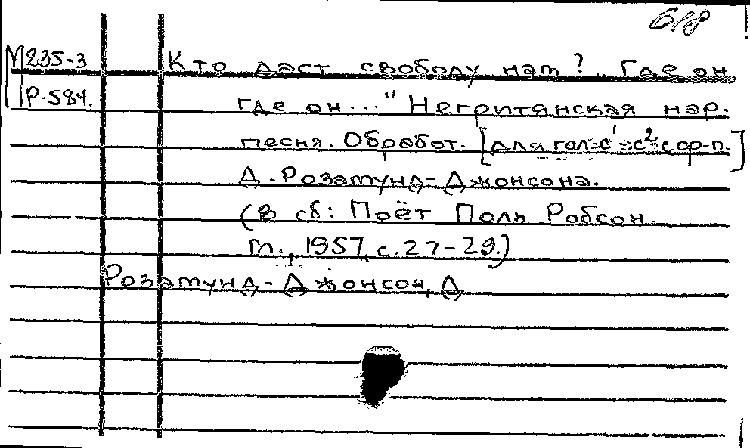 618
М235-3
Р-584.
Кто даст свободу нам? Где он
где он..." Негритянская нар.
песня. Обработ. [для гол. с¹-с² с ф-п.]
Д. Розамунд-Джонсона.
(В сб: Поёт Поль Робсон.
М., 1957, с. 27-29.)
Розамунд-Джонсон, Д